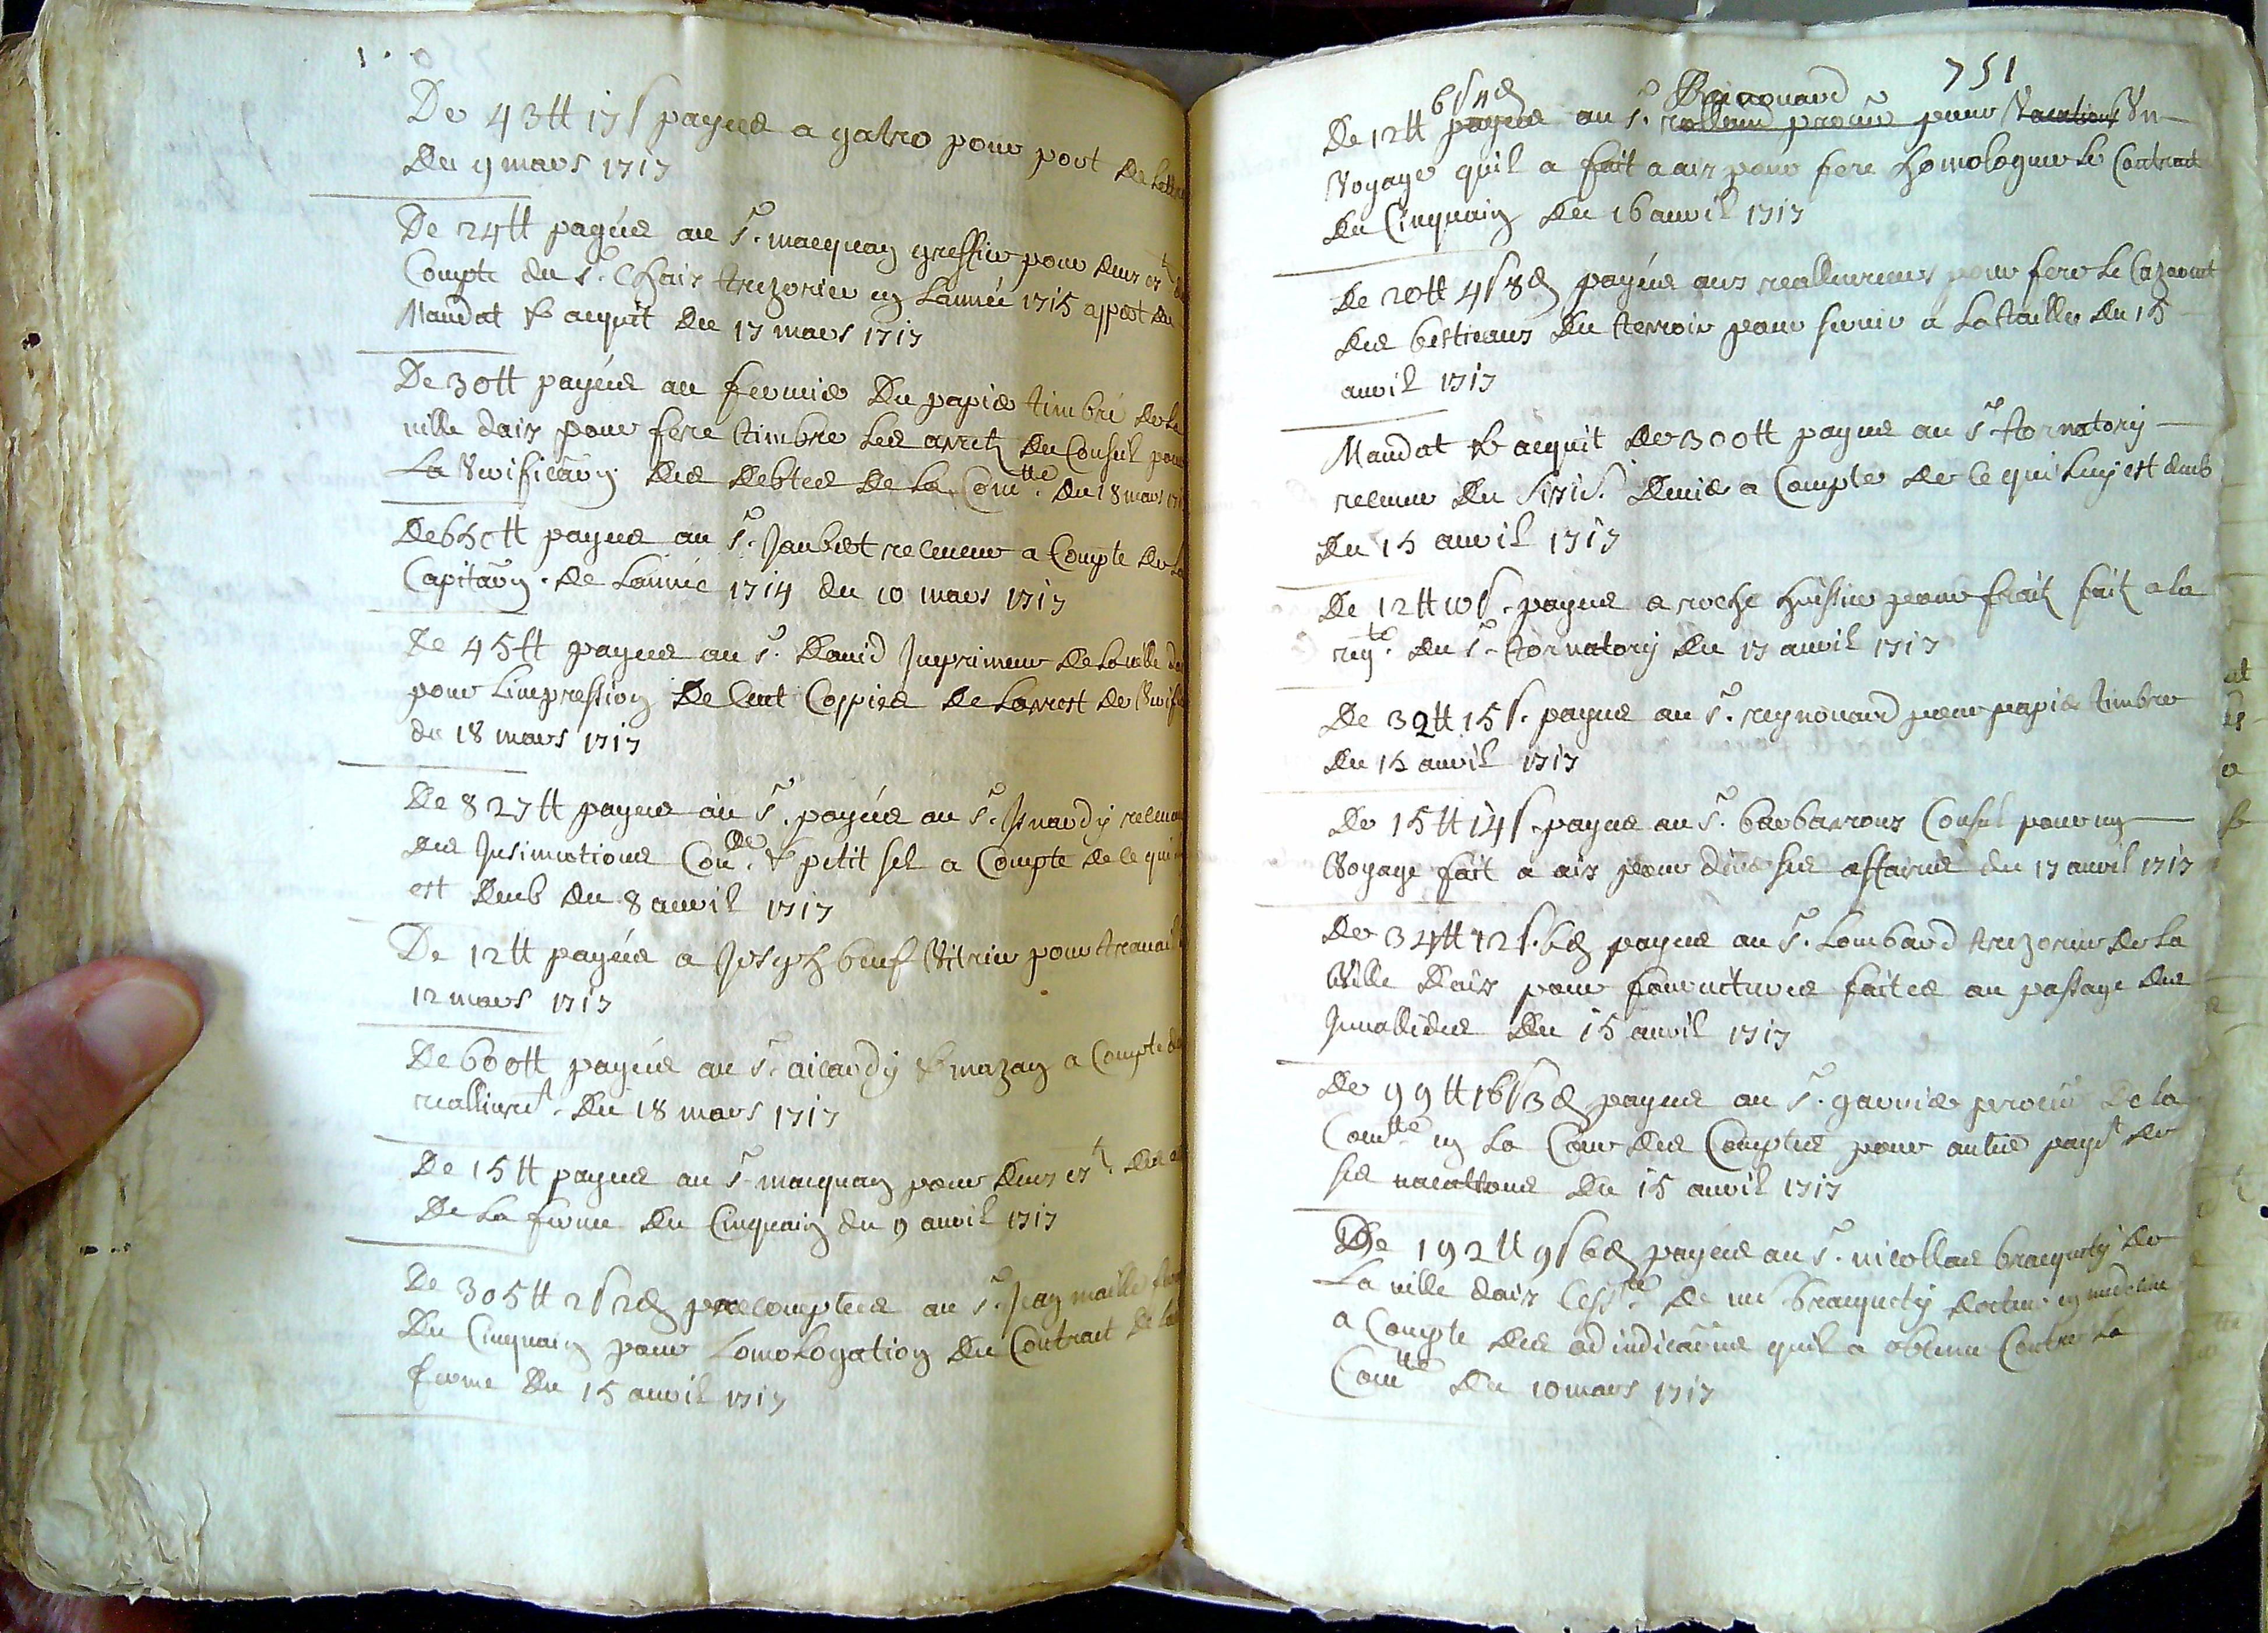 De 43tt 17s payees a gatro pour port de lettres
du 9 mars 1717
De 24tt payées au sr. macquan greffier pour deux extr
Compte du sr. Chaix trezorier en Lannée 1715 appert du
Mandat & acquit du 17 mars 1717
De 30tt payées au fermier Du papier timbré de la
ville daix pour fere timbrer les arretz du Conseil pour
La verificaon des debtes de la Comtte. du 18 mars 17
De 650tt payees au sr. Jaubert receveur a Compte de La
Capitaon. de Lannée 1714 du 10 mars 1717
De 45tt payees au sr. David Imprimeur de la ville d
pour Limpression de Cent Coppies de Larrest de veriff
du 18 mars 1717
De 827tt payees au sr. payées au sr. Isnardy receveur
des Insinuations Con & petit sel a Compte de ce qui
est deub du 8 avril 1717
De 12tt payées a Joseph beuf Vitrier pour travail
12 mars 1717
De 600tt payées au sr. aicardy & mazan a Compte du
reallivremt. du 18 mars 1717
De 15tt payees au sr macquan pour deux ext. des
De La ferme du Cinquain du 9 avril 1717
De 305tt 2s 2d precomptees au sr. Jean maille
Du Cinquain pour Lomologation du Contrait de la
ferme du 15 avril 1717
751
De 12tt 6s 4d payees au sr. rolland procur Raimouard pour vacations Un
Voyage quil a fait a aix pour fere homologuer le Contrait
du Cinquain du 16 avril 1717
De 20tt 4s 8d payées aux reallivreurs pour fere le Cazernet
des bestiaux du terroir pour servir a la tailles du 15
avril 1717
Mandat & acquit de 300tt payees au sr tornatory
receveur du deniers a Compte de ce qui luy est deub
du 15 avril 1717
De 12tt 10s. payees a roche huissier pour fraitz faitz a la
reqte. du sr. tornatory du 17 avril 1717
De 32tt 15s. payees au sr. reynouard pour papier timbre
du 15 avril 1717
De 15tt 14s. payees au sr. barbarroux Consul pour un
Voyage fait a aix pour diverses affaires du 17 avril 1717
De 34tt 12s. 6d payees au sr. Lombard trezorier de la
Ville daix pour fournitures faites au passage des
Invallides du 15 avril 1717
De 99tt 16s 3d payees au sr. garnier procur de la
Comtte en La Cour des Comptes pour autres payt de
ses vacations du 15 avril 1717
De 192tt 9s 6d payées au sr. nicollas bracquety de
La ville daix Cessre. de me bracquety docteur en medecine
a Compte des adjudicaons quil a obtenu Contre la
Comtte du 10 mars 1717